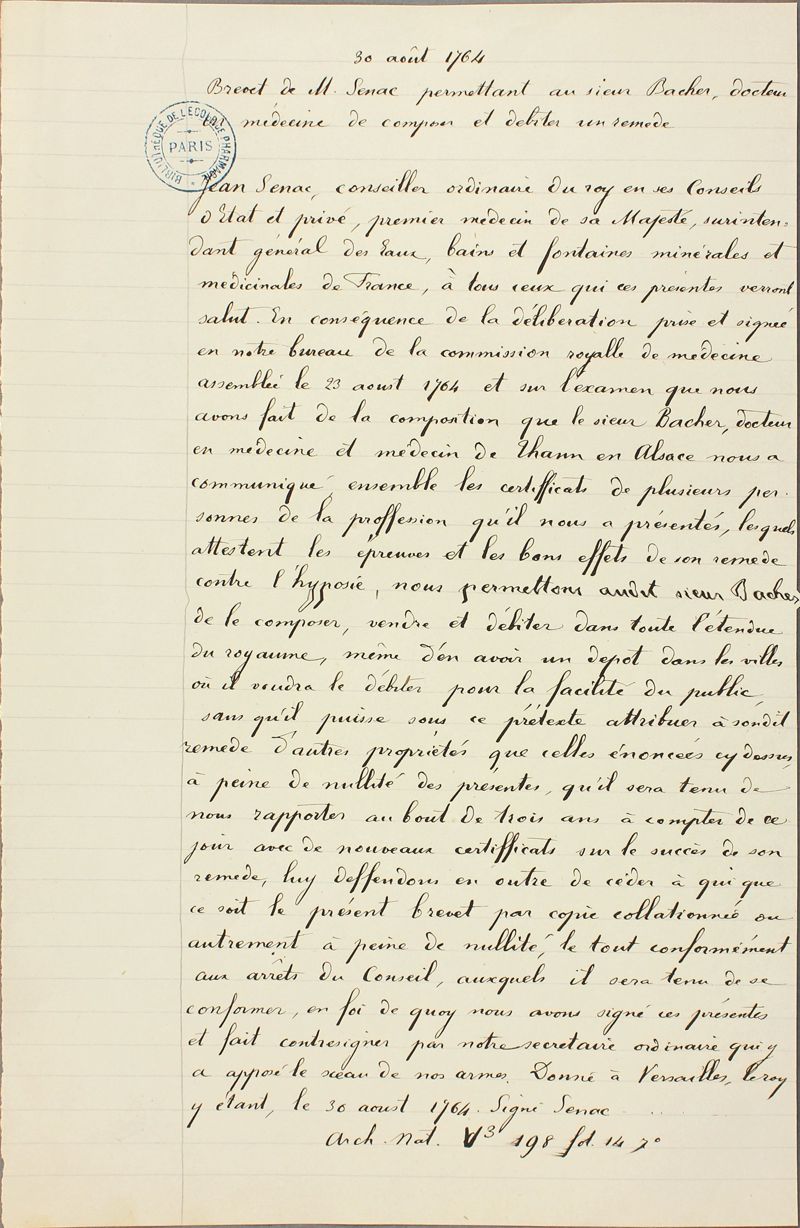 30 août 1764
Brevet de M. Senac permettant au sieur Bacher, docteur
en médecine de composer et debiter un remede
BIBLIOTHÈQUE DE L'ECOLE DE PHARMACIE
PARIS
Jean Senac, conseiller ordinaire du roy en ses Conseils
d'Etat et privé, premier medecin de sa Majesté, surinten=
dant général des Eaux, bains et fontaines minérales et
medicinales de France, à tous ceux qui ces présentes verront
salut. En conséquence de la déliberation prise et signée
en notre bureau de la commission royalle de medecine
assemblée le 23 aoust 1764 et sur l'examen que nous
avons fait de la composition que le sieur Bacher, docteur
en medecine et médecin de Thann en Alsace nous a
communiqué, ensemble les certifficats de plusieurs per-
sonnes de la proffession qu'il nous a présentés, lesquels
attestent les épreuves et les bons effets de son remede
contre l'hyposie, nous permettons audit sieur Bacher
de le composer, vendre et débiter dans toute l'étendue
du royaume, même d'en avoir un depot dans les villes
où il voudra le débiter pour la facilité du public,
sans qu'il puisse sous ce prétexte attribuer à sondit
remede d'autres propriétés que celles énoncées cy dessus,
à peine de nullité des présentes, qu'il sera tenu de
nous rapporter au bout de trois ans à compter de ce
jour avec de nouveaux certifficats sur le succès de son
remede, luy deffendons en outre de céder à qui que
ce soit le présent brevet par copie collationnée ou
autrement à peine de nullité, le tout conformément
aux arrêts du Conseil, auxquels il sera tenu de se
conformer, en foi de quoy nous avons signé ces présentes
et fait contresigner par notre secretaire ordinaire qui y
a apposé le sceau de nos armes. Donné à Versailles, le roy
y étant, le 30 aoust 1764. Signé Senac
Arch. Nat. V³ 198 fol. 14 r°